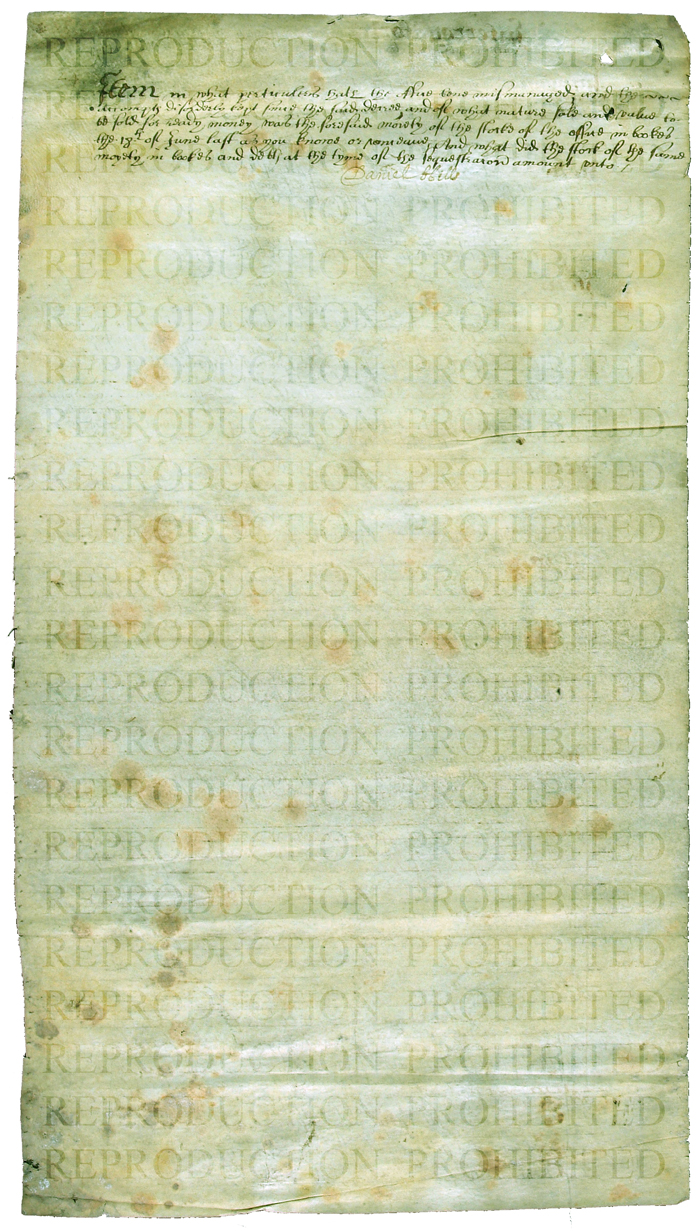 REPRODUCTION PROHIBITED
Item in what perticulers hath the office bene mismanaged and the
accompts disorderly kept since the said decree, and of what nature sale and value to
be sold for ready money was the foresaid moyety of the stocke of the office in bookes
the 18th of June last as you knowe or conceive, And what did the stock of the same
moyety in bookes and debts at the tyme of the sequestracion amount unto /
Daniel
REPRODUCTION PROHIBITED
REPRODUCTION PROHIBITED
REPRODUCTION PROHIBITED
REPRODUCTION PROHIBITED
REPRODUCTION PROHIBITED
REPRODUCTION PROHIBITED
REPRODUCTION PROHIBITED
REPRODUCTION PROHIBITED
REPRODUCTION PROHIBITED
REPRODUCTION PROHIBITED
REPRODUCTION PROHIBITED
REPRODUCTION PROHIBITED
REPRODUCTION PROHIBITED
REPRODUCTION PROHIBITED
REPRODUCTION PROHIBITED
REPRODUCTION PROHIBITED
REPRODUCTION PROHIBITED
REPRODUCTION PROHIBITED
REPRODUCTION PROHIBITED
REPRODUCTION PROHIBITED
REPRODUCTION PROHIBITED